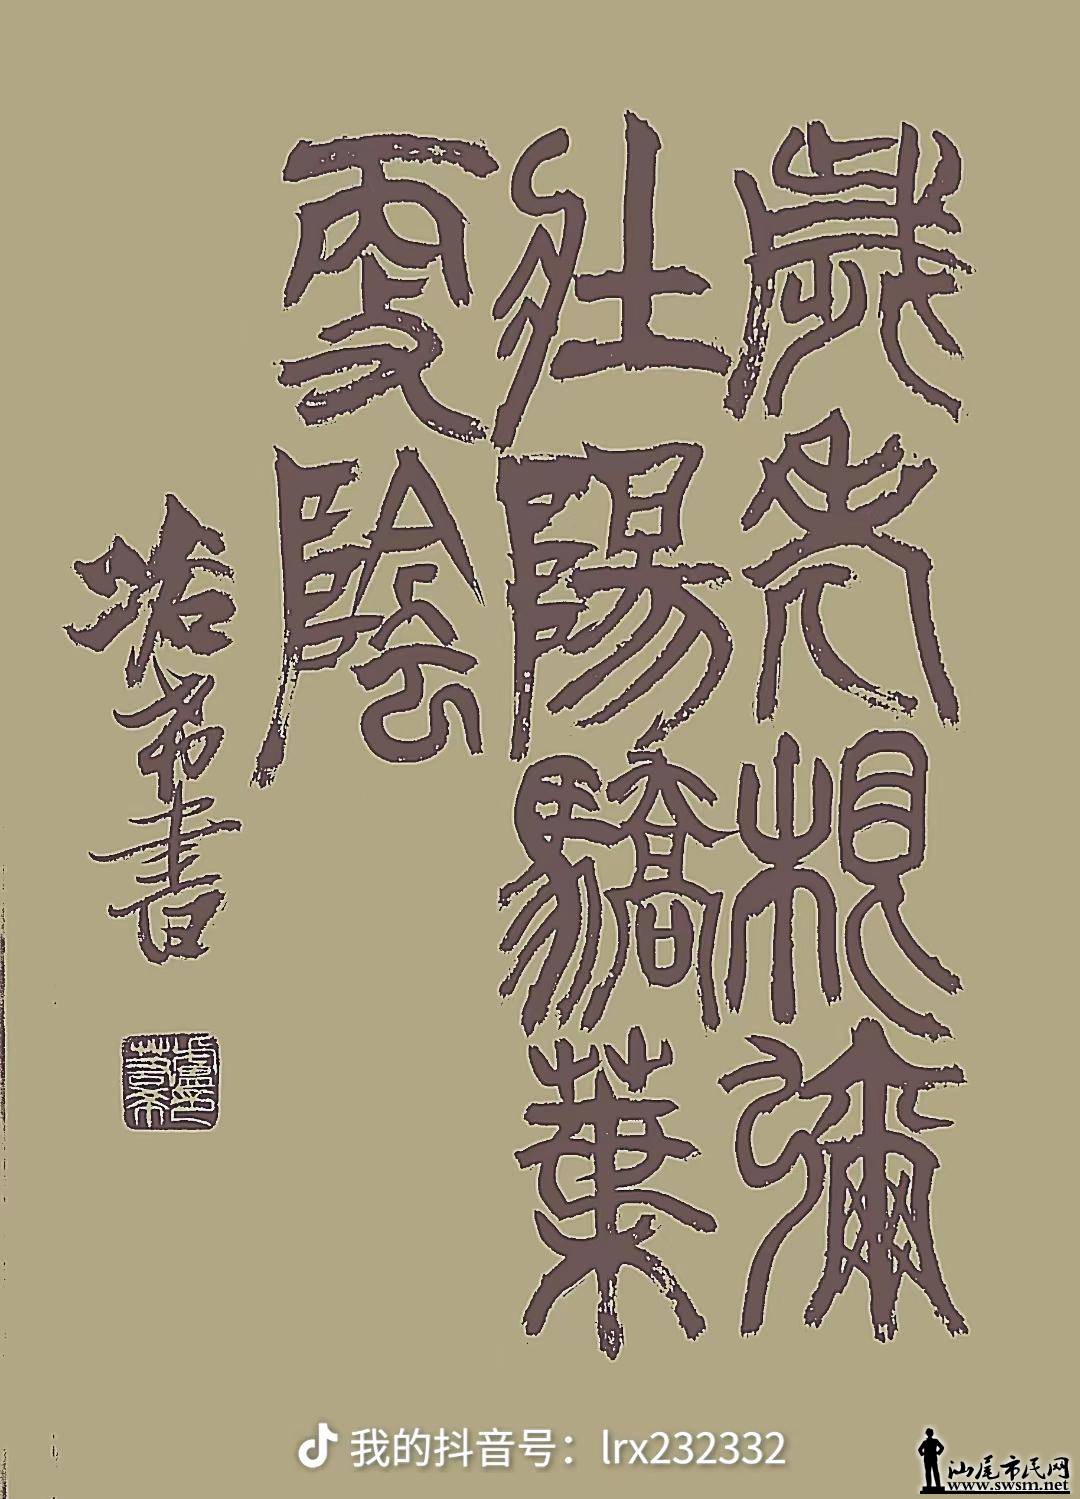 歲老根彌
壯陽驕葉
更陰
希書
我的抖音号：lrx232332
汕尾市民网
www.swsm.net